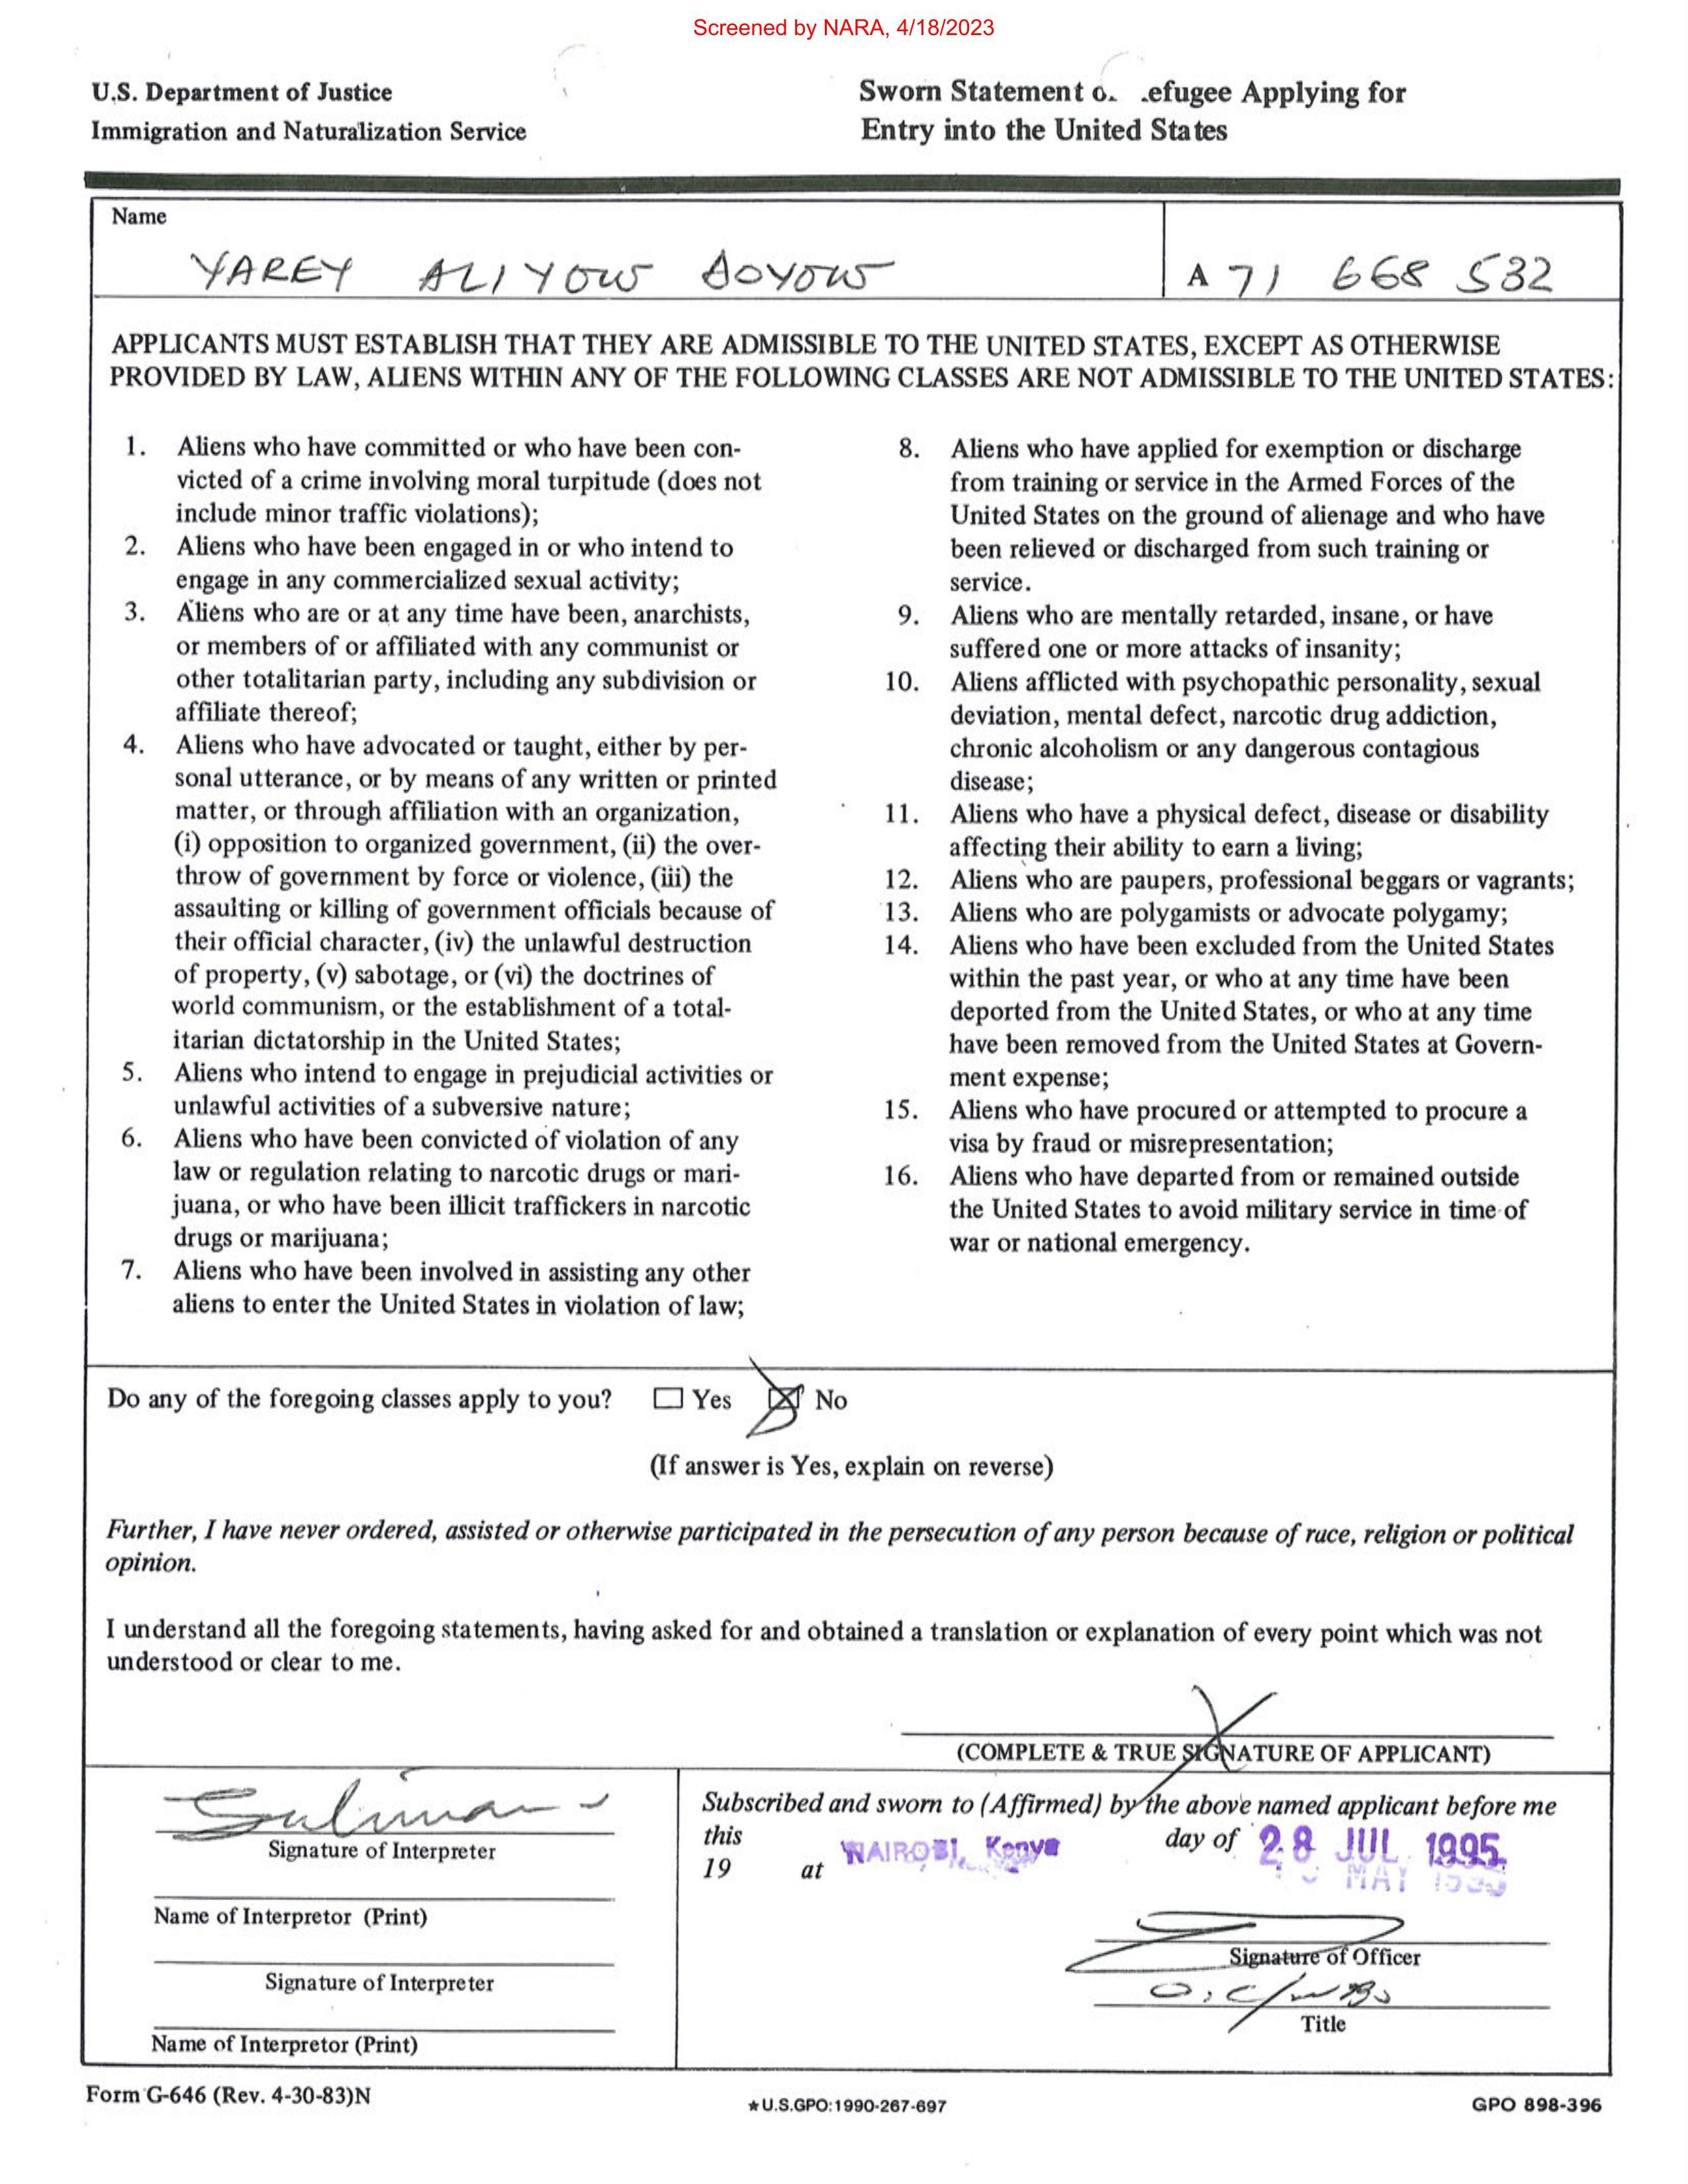 Screened by NARA, 4/18/2023
U.S. Department of Justice
Immigration and Naturalization Service
Sworn Statement o. .efugee Applying for
Entry into the United States
Name
YAREY ALIYOW
A 71 668 532
APPLICANTS MUST ESTABLISH THAT THEY ARE ADMISSIBLE TO THE UNITED STATES, EXCEPT AS OTHERWISE
PROVIDED BY LAW, ALIENS WITHIN ANY OF THE FOLLOWING CLASSES ARE NOT ADMISSIBLE TO THE UNITED STATES:
1. Aliens who have committed or who have been con-
victed of a crime involving moral turpitude (does not
include minor traffic violations);
2. Aliens who have been engaged in or who intend to
engage in any commercialized sexual activity;
3. Aliens who are or at any time have been, anarchists,
or members of or affiliated with any communist or
other totalitarian party, including any subdivision or
affiliate thereof;
4. Aliens who have advocated or taught, either by per-
sonal utterance, or by means of any written or printed
matter, or through affiliation with an organization,
(i) opposition to organized government, (ii) the over-
throw of government by force or violence, (iii) the
assaulting or killing of government officials because of
their official character, (iv) the unlawful destruction
of property, (v) sabotage, or (vi) the doctrines of
world communism, or the establishment of a total-
itarian dictatorship in the United States;
5. Aliens who intend to engage in prejudicial activities or
unlawful activities of a subversive nature;
6. Aliens who have been convicted of violation of any
law or regulation relating to narcotic drugs or mari-
juana, or who have been illicit traffickers in narcotic
drugs or marijuana;
7. Aliens who have been involved in assisting any other
aliens to enter the United States in violation of law;
8. Aliens who have applied for exemption or discharge
from training or service in the Armed Forces of the
United States on the ground of alienage and who have
been relieved or discharged from such training or
service.
9. Aliens who are mentally retarded, insane, or have
suffered one or more attacks of insanity;
10. Aliens afflicted with psychopathic personality, sexual
deviation, mental defect, narcotic drug addiction,
chronic alcoholism or any dangerous contagious
disease;
11. Aliens who have a physical defect, disease or disability
affecting their ability to earn a living;
12. Aliens who are paupers, professional beggars or vagrants;
13. Aliens who are polygamists or advocate polygamy;
14. Aliens who have been excluded from the United States
within the past year, or who at any time have been
deported from the United States, or who at any time
have been removed from the United States at Govern-
ment expense;
15. Aliens who have procured or attempted to procure a
visa by fraud or misrepresentation;
16. Aliens who have departed from or remained outside
the United States to avoid military service in time of
war or national emergency.
Do any of the foregoing classes apply to you? Yes No
(If answer is Yes, explain on reverse)
Further, I have never ordered, assisted or otherwise participated in the persecution of any person because of race, religion or political
opinion.
I understand all the foregoing statements, having asked for and obtained a translation or explanation of every point which was not
understood or clear to me.
X
(COMPLETE & TRUE SIGNATURE OF APPLICANT)
Signature of Interpreter
Name of Interpretor (Print)
Signature of Interpreter
Name of Interpretor (Print)
Subscribed and sworn to (Affirmed) by the above named applicant before me
this day of 28 JUL 1995
19 at NAIROBI, Kenya
Signature of Officer
Title
Form G-646 (Rev. 4-30-83)N
★U.S.GPO:1990-267-697
GPO 898-396